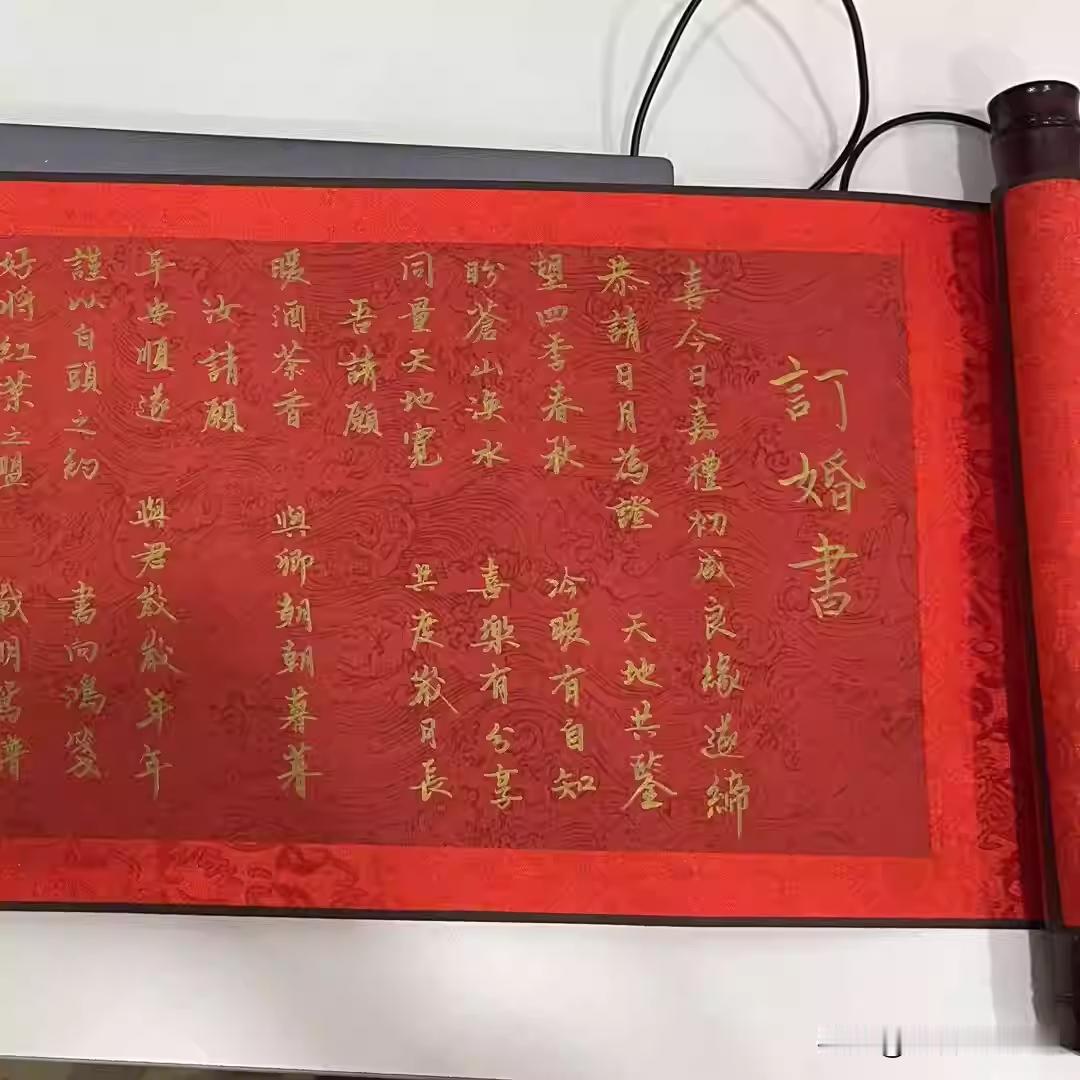 訂婚書
喜今日嘉禮初成良緣遂締
恭請日月為證 天地共鑒
望四季春秋 冷暖有自知
盼蒼山渙水 喜樂有分享
同量天地寬 共度歲月長
吾請願
暖酒茶香 與卿朝朝暮暮
汝請願
平安順遂 與君歲歲年年
謹以白頭之約 書向鴻箋
好將紅葉之盟 載明鴛譜